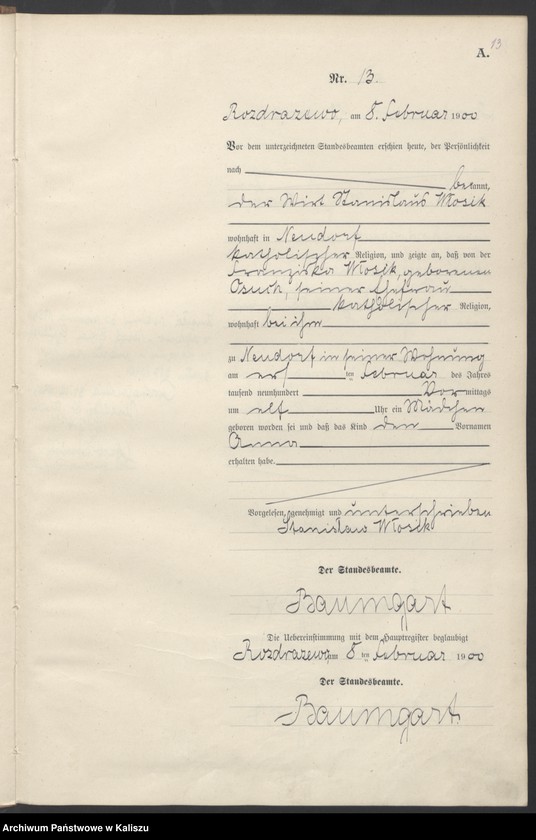 13
A.
Nr. 13.
Rozdrazewo, am 8. Februar 1900
Vor dem unterzeichneten Standesbeamten erschien heute, der Persönlichkeit
nach bekannt,
der Wirt Stanislaus Włosik
wohnhaft in Neudorf
katholischer Religion, und zeigte an, daß von der
Franziska Włosik, geborenen
Osuch, seiner Ehefrau
katholischer Religion,
wohnhaft bei ihm
zu Neudorf in seiner Wohnung
am ten Februar des Jahres
tausend neunhundert Vormittags
um elf Uhr ein Mädchen
geboren worden sei und daß das Kind den Vornamen
Anna
erhalten habe.
Vorgelesen, genehmigt und unterschrieben
Stanisław Włosik
Der Standesbeamte.
Baumgart
Die Uebereinstimmung mit dem Hauptregister beglaubigt
Rozdrazewo am 8 ten Februar 1900
Der Standesbeamte.
Baumgart.
Archiwum Państwowe w Kaliszu